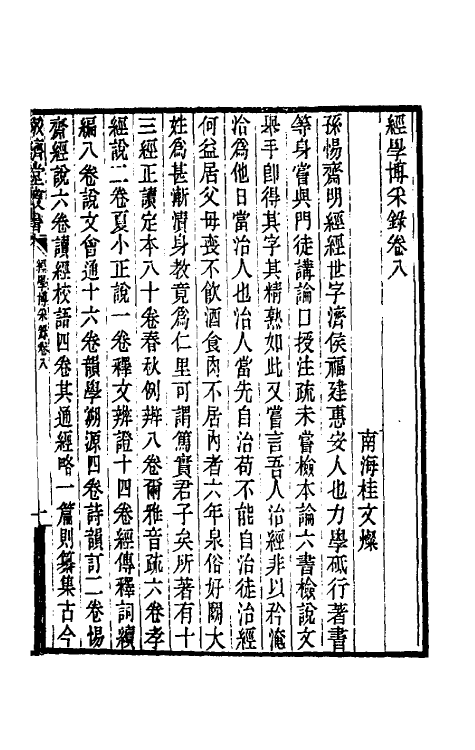 經學博采錄卷八
南海桂文燦
孫惕齋明經經世字濟侯福建惠安人也力學砥行著書
等身嘗與門徒講論口授注疏未嘗檢本論六書檢說文
舉手卽得其字其精熟如此又嘗言吾人治經非以矜淹
洽為他日當治人也治人當先自治苟不能自治徒治經
何益居父母喪不飲酒食肉不居內者六年泉俗好鬬大
姓為甚漸漬身教竟為仁里可謂篤實君子矣所著有十
三經正讀定本八十卷春秋例辨八卷爾雅音疏六卷孝
經說二卷夏小正說一卷釋文辨證十四卷經傳釋詞續
編八卷說文會通十六卷韻學溯源四卷詩韻訂二卷惕
齋經說六卷讀經校語四卷其通經略一篇則纂集古今
經學博采錄卷八
一